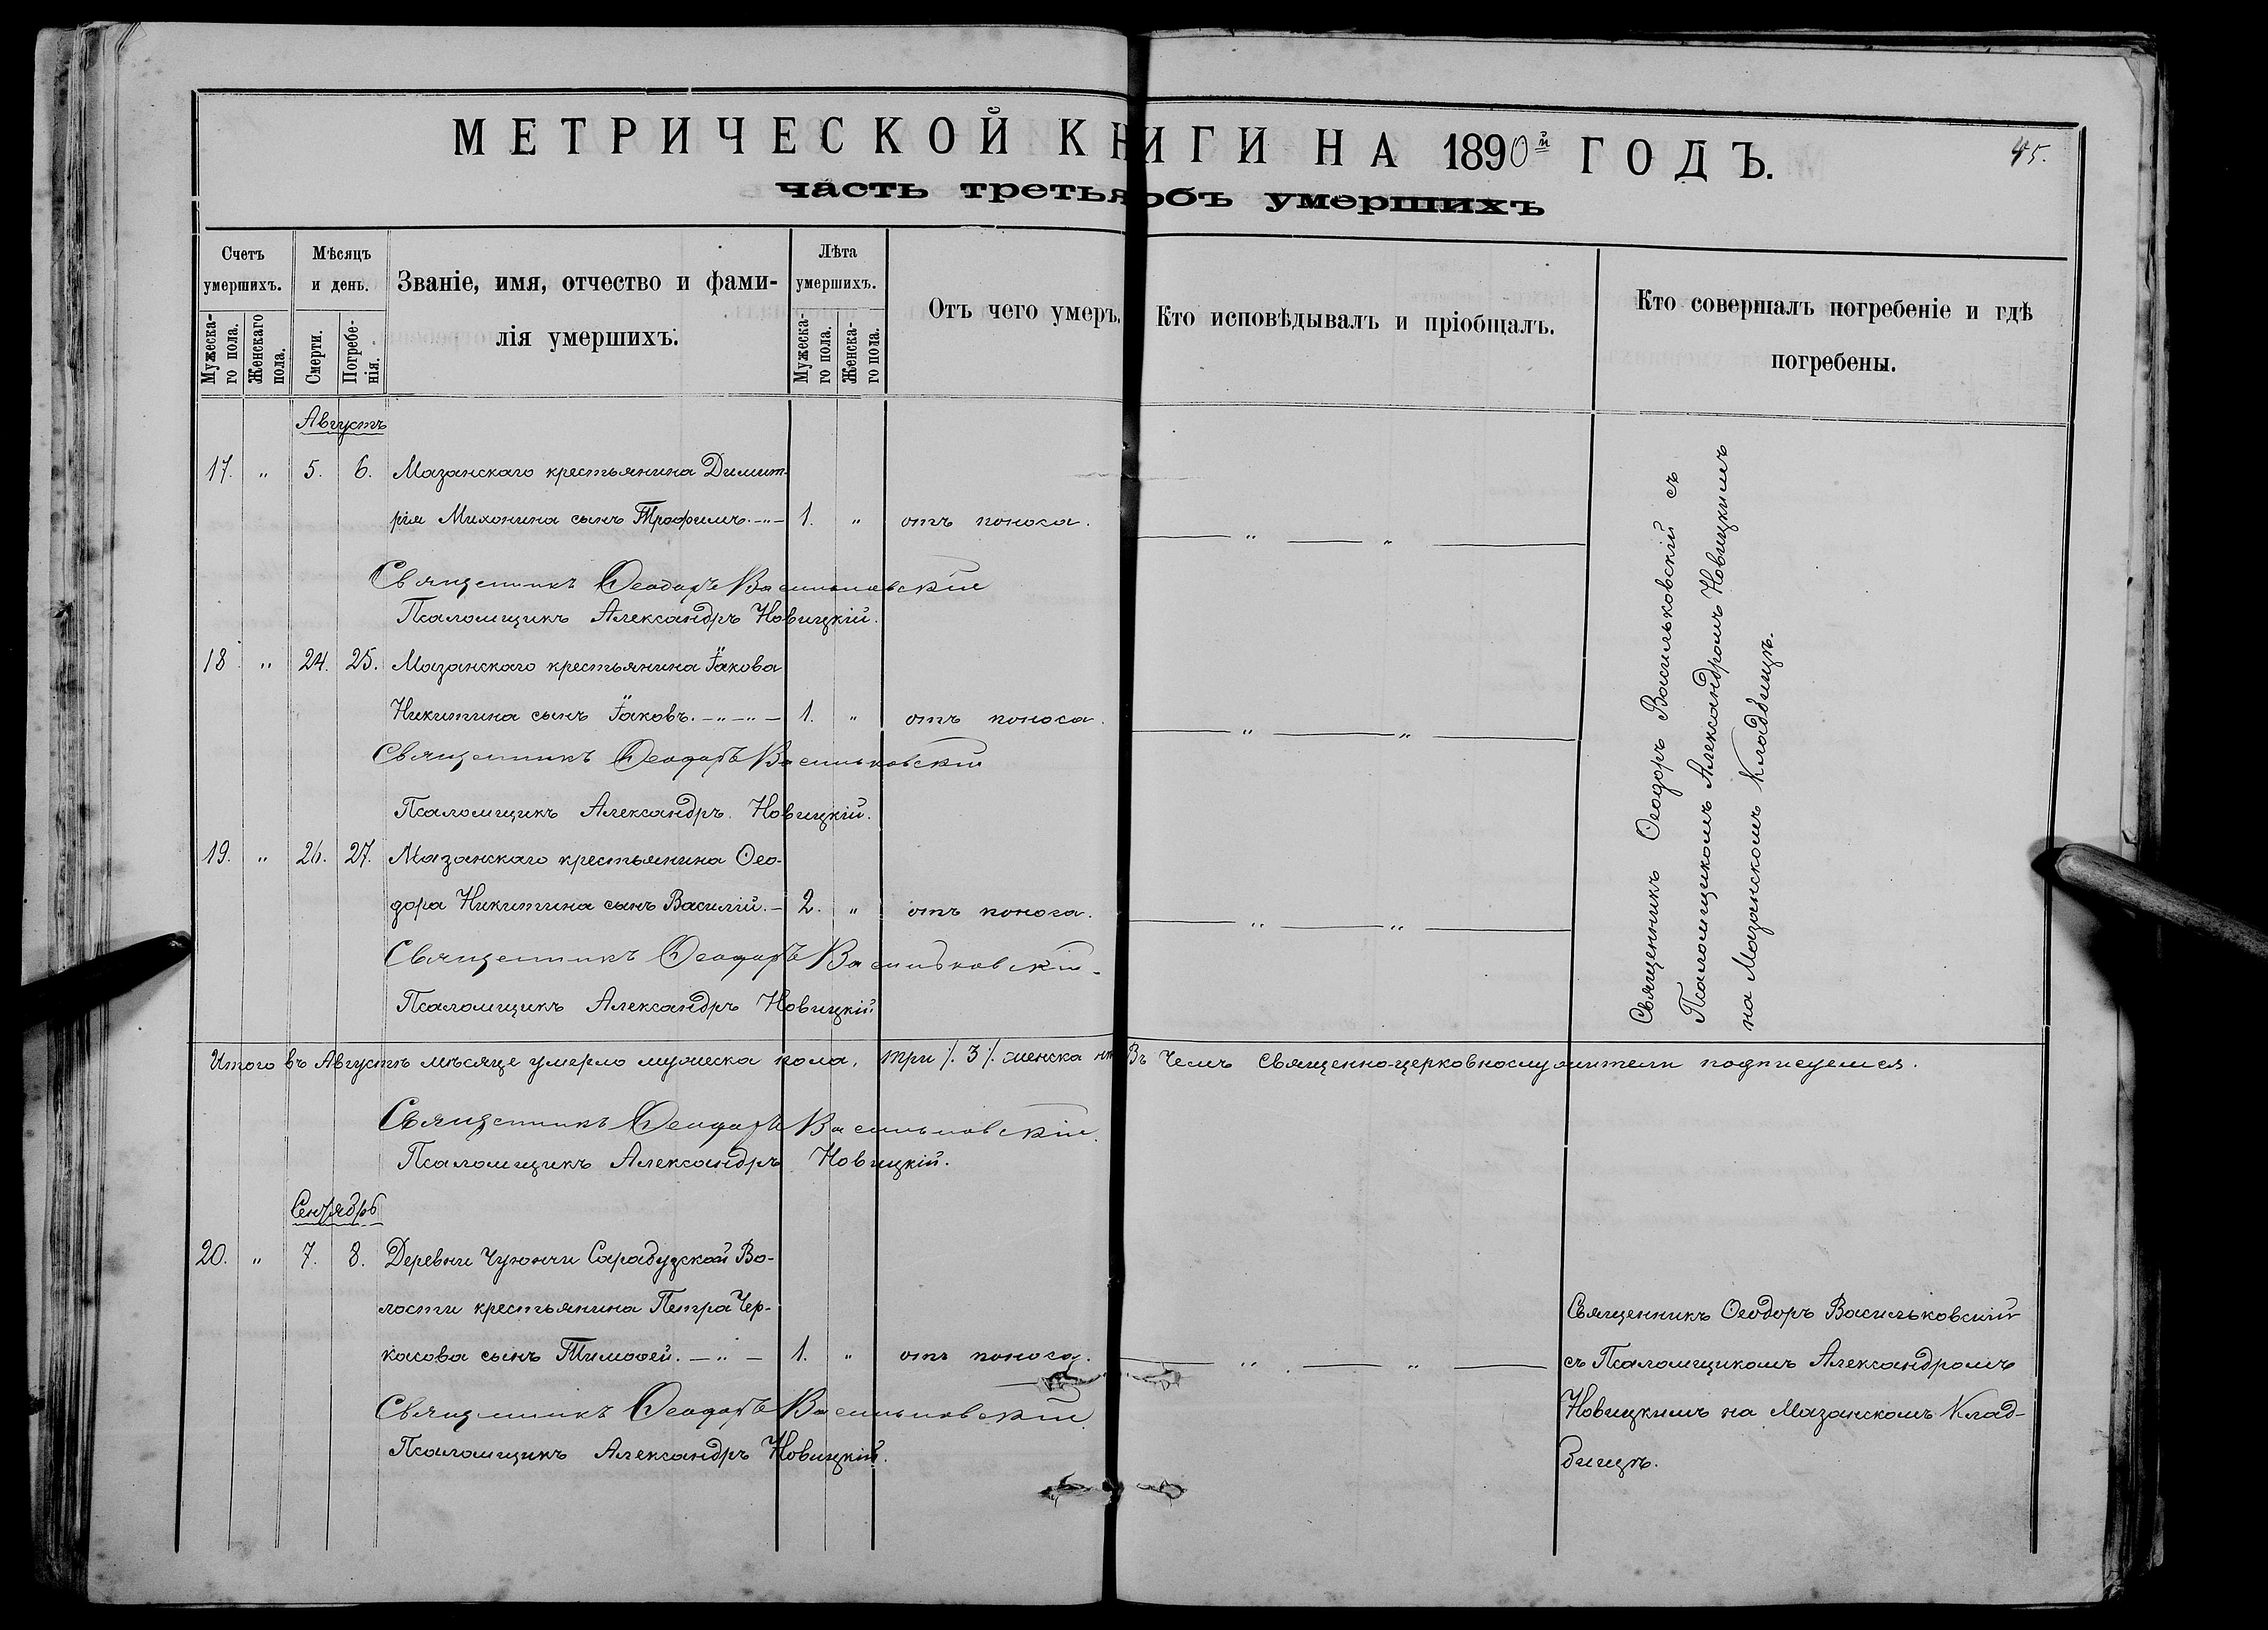 МЕТРИЧЕСКОЙ КНИГИ НА 1890й ГОДЪ.
45.
часть третья объ умершихъ
Счетъ умершихъ.
Мужеска-
го пола.
Женскаго
пола.
Мѣсяцъ
и день.
Смерти.
Погребе-
нія.
Званіе, имя, отчество и фами-
лія умершихъ.
Лѣта
умершихъ.
Мужеска-
го пола.
Женска-
го пола.
Отъ чего умеръ.
Кто исповѣдывалъ и пріобщалъ.
Кто совершалъ погребеніе и гдѣ
погребены.
Августъ
17. „ 5. 6. Мазанскаго крестьянина Димит-
рія Михонина сынъ Трофимъ. 1. „ отъ поноса.
Священникъ Ѳеодоръ Васильковскій
Псаломщикъ Александръ Новицкій.
18. „ 24. 25. Мазанскаго крестьянина Іакова
Никитина сынъ Іаковъ. 1. „ отъ поноса.
Священникъ Ѳеодоръ Васильковскій
Псаломщикъ Александръ Новицкій.
19. „ 26. 27. Мазанскаго крестьянина Ѳео-
дора Никитина сынъ Василій. 2. „ отъ поноса.
Священникъ Ѳеодоръ Васильковскій.
Псаломщикъ Александръ Новицкій
Священникъ Ѳеодоръ Васильковскій съ
Псаломщикомъ Александромъ Новицкимъ
на Мазанскомъ Кладбищѣ.
Итого въ Августѣ мѣсяце умерло мужеска пола, три /. 3 /. женска Въ чемъ священно-церковнослужители подписуемся.
Священникъ Ѳеодоръ Васильковскій.
Псаломщикъ Александръ Новицкій.
Сентябрь
20. „ 7. 8. Деревни Чуюнчи Сарабузской Во-
лости крестьянина Петра Чер-
касова сынъ Тимоѳей. 1. „ отъ поноса.
Священникъ Ѳеодоръ Васильковскій
Псаломщикъ Александръ Новицкій.
Священникъ Ѳеодоръ Васильковскій
съ Псаломщикомъ Александромъ
Новицкимъ на Мазанскомъ Клад-
бищѣ.